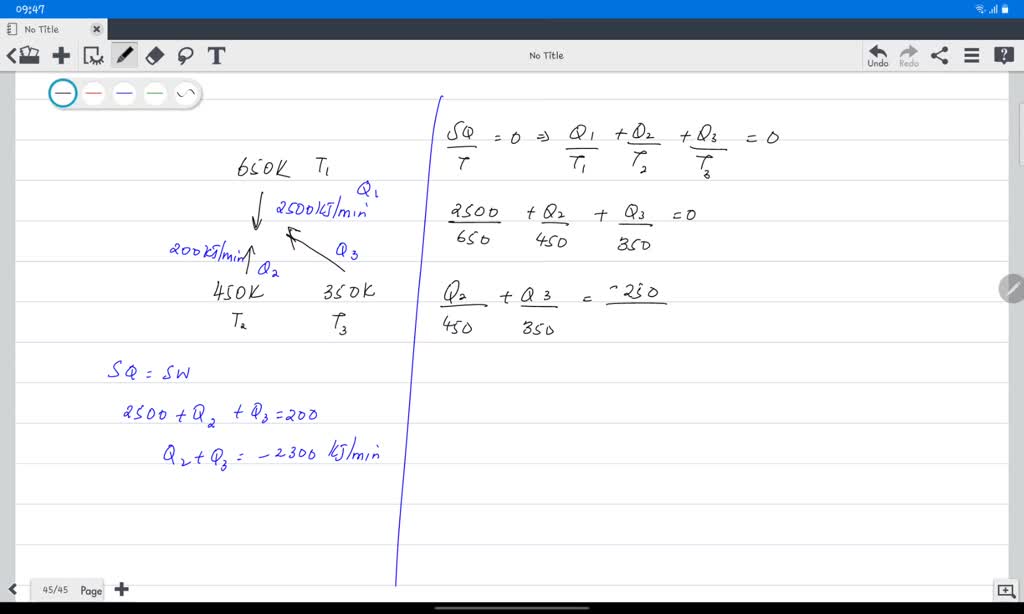 09:47
No Title
No Title
Undo
Redo
650K T₁
Q₁
2500KJ/min
200KJ/min
Q₂
Q₃
450K 350K
T₂ T₃
SQ = SW
2500 + Q₂ + Q₃ = 200
Q₂ + Q₃ = -2300 KJ/min
SQ/T = 0 ⇒ Q₁/T₁ + Q₂/T₂ + Q₃/T₃ = 0
2500/650 + Q₂/450 + Q₃/350 = 0
Q₂/450 + Q₃/350 = -250
45/45 Page